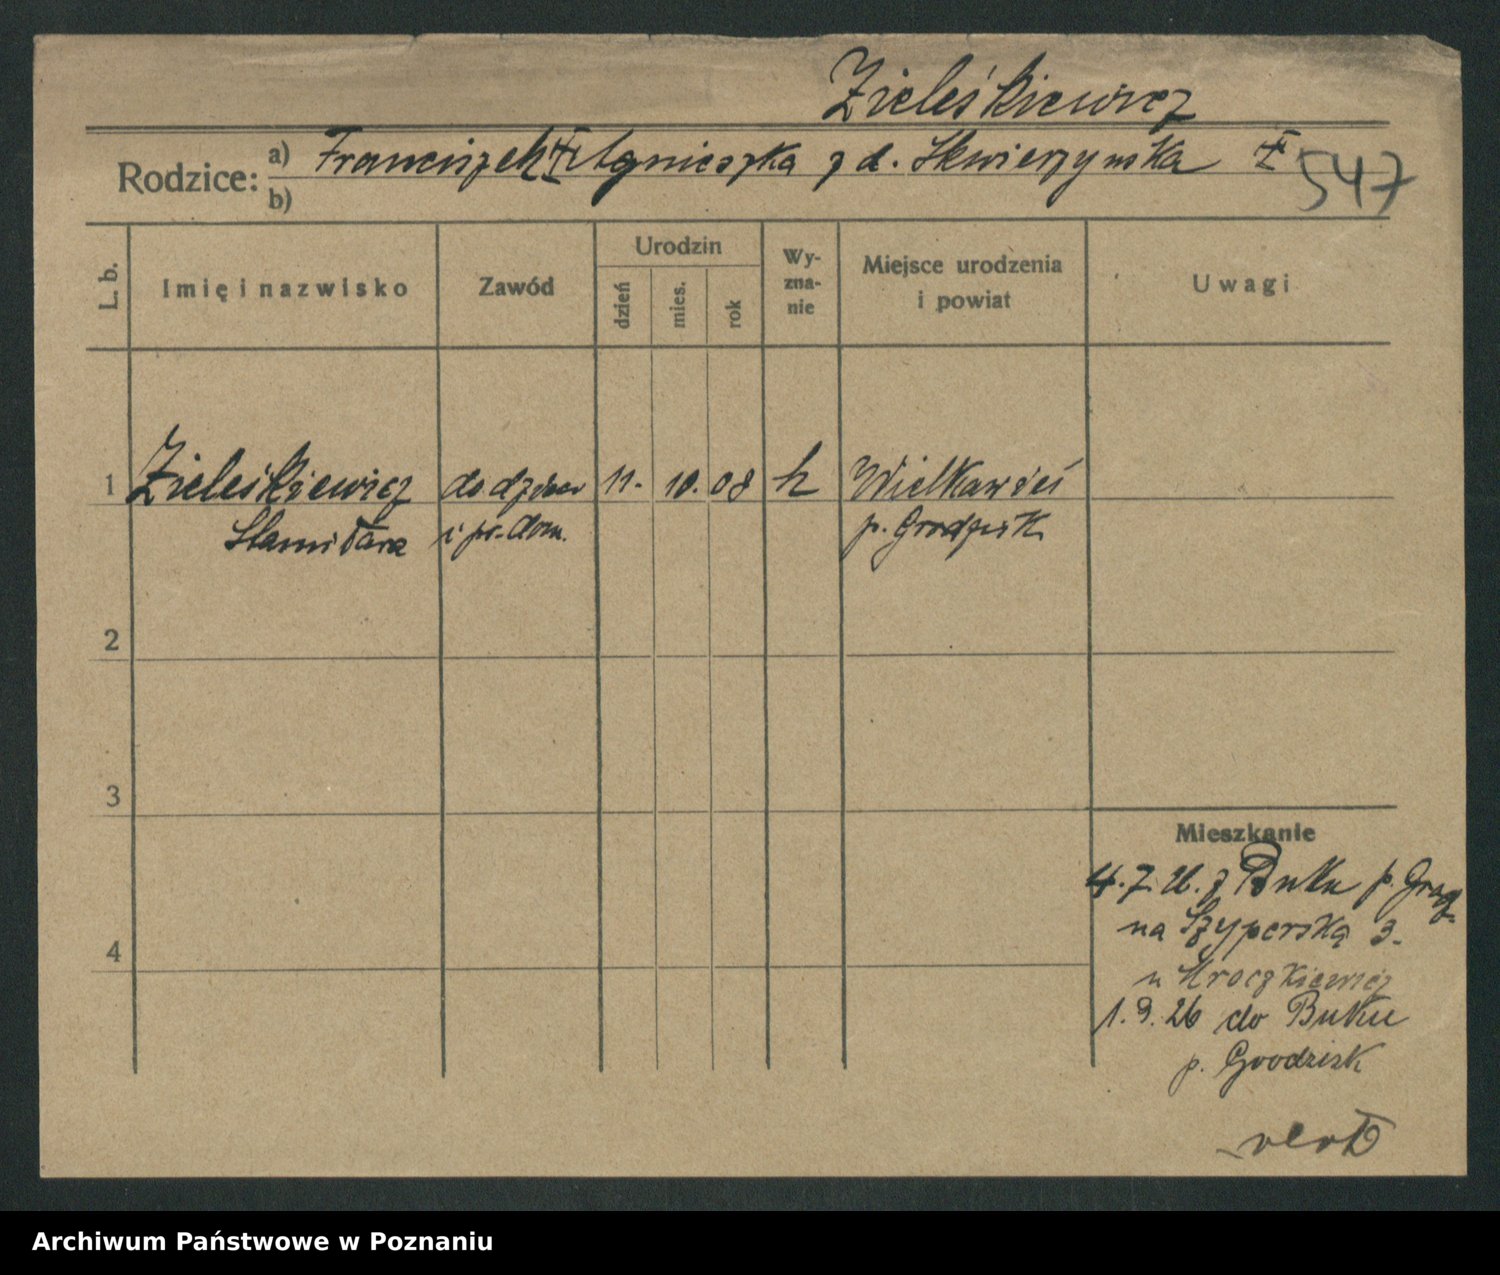 Zieleśkiewicz
Rodzice: a) Franciszek Agnieszka z d. Skwierzynska
b)
547
L. b.
Imię i nazwisko
Zawód
Urodzin
dzień
mies.
rok
Wy-
zna-
nie
Miejsce urodzenia
i powiat
Uwagi
1 Zieleśkiewicz do dzieci 11. 10. 08 k Wielkawieś
Stanisława i pr. dom. p. Grodzisk
2
3
4
Mieszkanie
4. 7. 26. z Buku p. Grodz.
na Szyperską 3.
u Kroczkiewicz
1. 9. 26 do Buku
p. Grodzisk
Archiwum Państwowe w Poznaniu